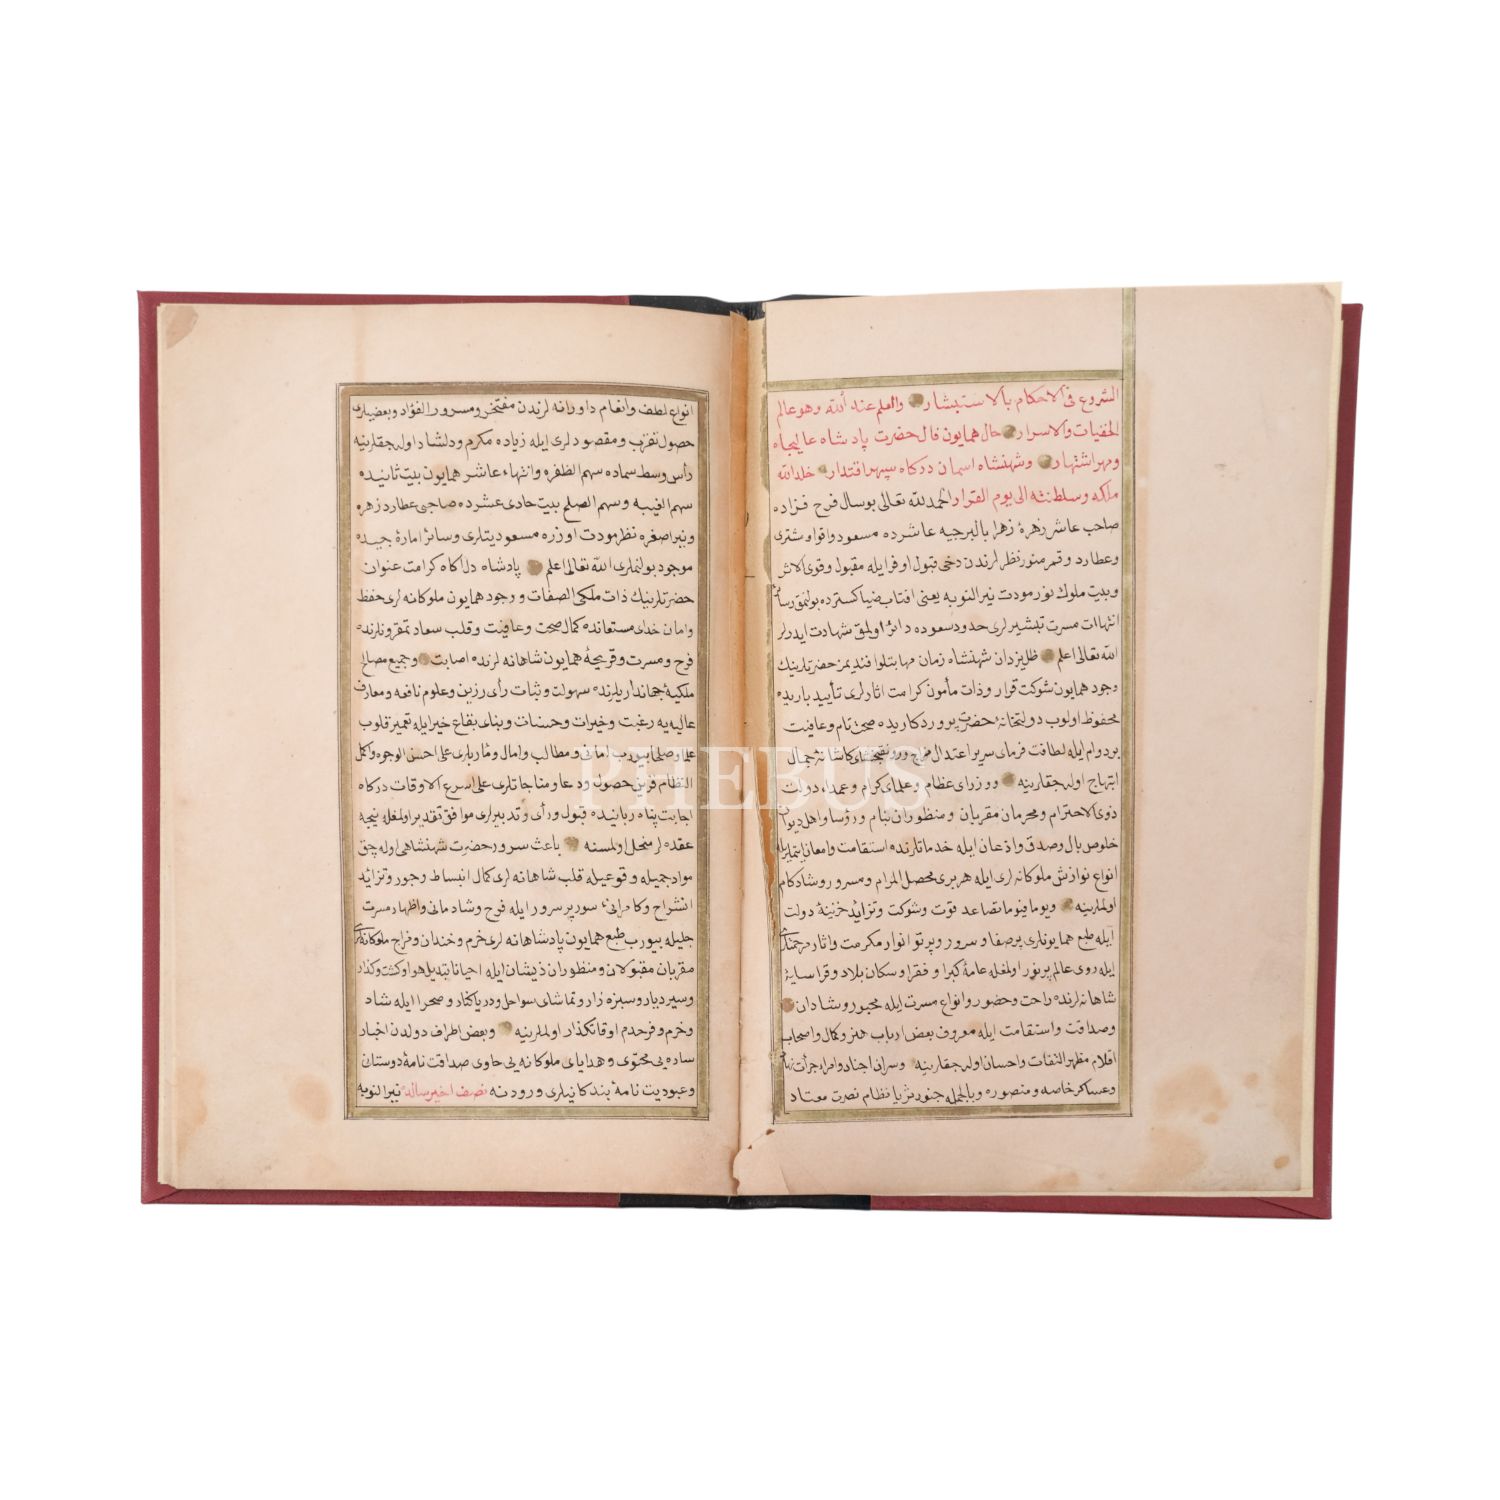 الشروع فى الاحكام بالاستبشار والعلم عند الله وهو عالم
الخفيات والاسرار حال همايون فال حضرت پادشاه عاليجاه
ومهر اشتهار وشهنشاه اسمان دركاه سپهر اقتدار خلد الله
ملكه وسلطنته الى يوم القرار الحمد لله تعالى بو سال فرح فزاده
صاحب عاشر زهرۀ زهرا بالبرجيه عاشرده مسعود واقوا ومشترى
وعطارد وقمر منور نظرلرندن دخى قبول اوفر ايله مقبول وقوى الاثر
وبيت ملوك نور مودت نير النوبه يعنى افتاب ضيا كسترده بولنمق رساۀ
انتهاات مسرت تبشيرلرى حدود سعوده دائر اولمق شهادت ايدرلر
الله تعالى اعلم ظل يزدان شهنشاه زمان مهابتلو افنديمز حضرتلرينك
وجود همايون شوكت قرار وذات مأمون كرامت اثارلرى تأييد باريده
محفوظ اولوب دولتخانۀ حضرت پروردكاريده صحت تام وعافيت
بردوام ايله لطافت فرماى سرير اعتدال مزاج ورونقبخشاى كاشانۀ جمال
ابتهاج اوله جقلرينه ووزراى عظام وعلماى كرام وعمداء دولت
ذوى الاحترام ومحرمان مقربان ومنظوران بنام ورؤسا واهل ديوان
خلوص بال وصدق واذعان ايله خدماتلرنده استقامت وامعانلريله
انواع نوازش ملوكانه لرى ايله هر برى محصل المرام ومسرور وشادكام
اولملرينه ويوما فيوما تصاعد قوت وشوكت وتزايد خزينۀ دولت
ايله طبع همايونلرى پرصفا وسرور وپرتو انوار مكرمت واثار مرحمتلرى
ايله روى عالم پرنور اولمغله عامۀ كبرا وفقرا وسكان بلاد وقرا سايۀ
شاهانه لرنده راحت وحضور وانواع مسرت ايله مجبور وشادان
وصداقت واستقامت ايله معروف بعض ارباب هنر وكمال واصحاب
اقلام مظهر التفات واحسان اوله جقلرينه وسران اجناد وامراء جرأت
وعساكر خاصه ومنصوره وبالجمله جنود ثريا نظام نصرت معتاد
انواع لطف وانعام داورانه لرندن مفتخر ومسرور الفؤاد وبعضيلرى
حصول تقرب ومقصودلرى ايله زياده مكرم ودلشاد اوله جقلرينه
رأس وسط سماده سهم الظفره وانتهاء عاشر همايون بيت ثانيده
سهم الغيبه وسهم الصلح بيت حادى عشرده صاحبى عطارد زهره
ونير اصغره نظر مودت اوزره مسعوديتلرى وسائر امارۀ جيده
موجود بولنملرى الله تعالى اعلم پادشاه دل اكاه كرامت عنوان
حضرتلرينك ذات ملكى الصفات ووجود همايون ملوكانه لرى حفظ
وامان خداى مستعانده كمال صحت وعافيت وقلب سعادتمقرونلرنده
فرح ومسرت وقريحۀ همايون شاهانه لرنده اصابت وجميع مصالح
ملكيۀ جهاندارىلرنده سهولت وثبات رأى رزين وعلوم نافعه ومعارف
عاليه يه رغبت وخيرات وحسنات وبناى بقاع خير ايله تعمير قلوب
علما وصلحا بيورب امانى ومطالب وامال ومأربلرى على احسن الوجوه واكمل
النظام قرين حصول ودعا ومناجاتلرى على اسرع الاوقات دركاه
اجابت پناه ربانيده قبول ورأى وتدبيرلرى موافق تقدير اولمغله نيجه
عقده لر منحل اولمسنه باعث سرور حضرت شهنشاهى اوله جق
مواد جميله وقوعيله قلب شاهانه لرى كمال انبساط وحبور وتزايد
انشراح وكامرانئ سور پر سرور ايله فرح وشادمانى واظهار مسرت
جليله بيورب طبع همايون پادشاهانه لرى خرم وخندان ومزاج ملوكانه لرى
مقربان مقبولان ومنظوران ذيشان ايله احيانا تبديل هوا وكشت وكذار
وسير ديار وسبزه زار وتماشاى سواحل ودرياكنار وصحرا ايله شاد
وخرم وفرحدم اوقاتكذار اولملرينه وبعض اطراف دولدن اخبار
ساده يى محتوى وهداياى ملوكانه يى حاوى صداقت نامۀ دوستان
وعبوديت نامۀ بندكانيلرى ورودنه نصف اخير ساله نير النوبه
PHEBUS